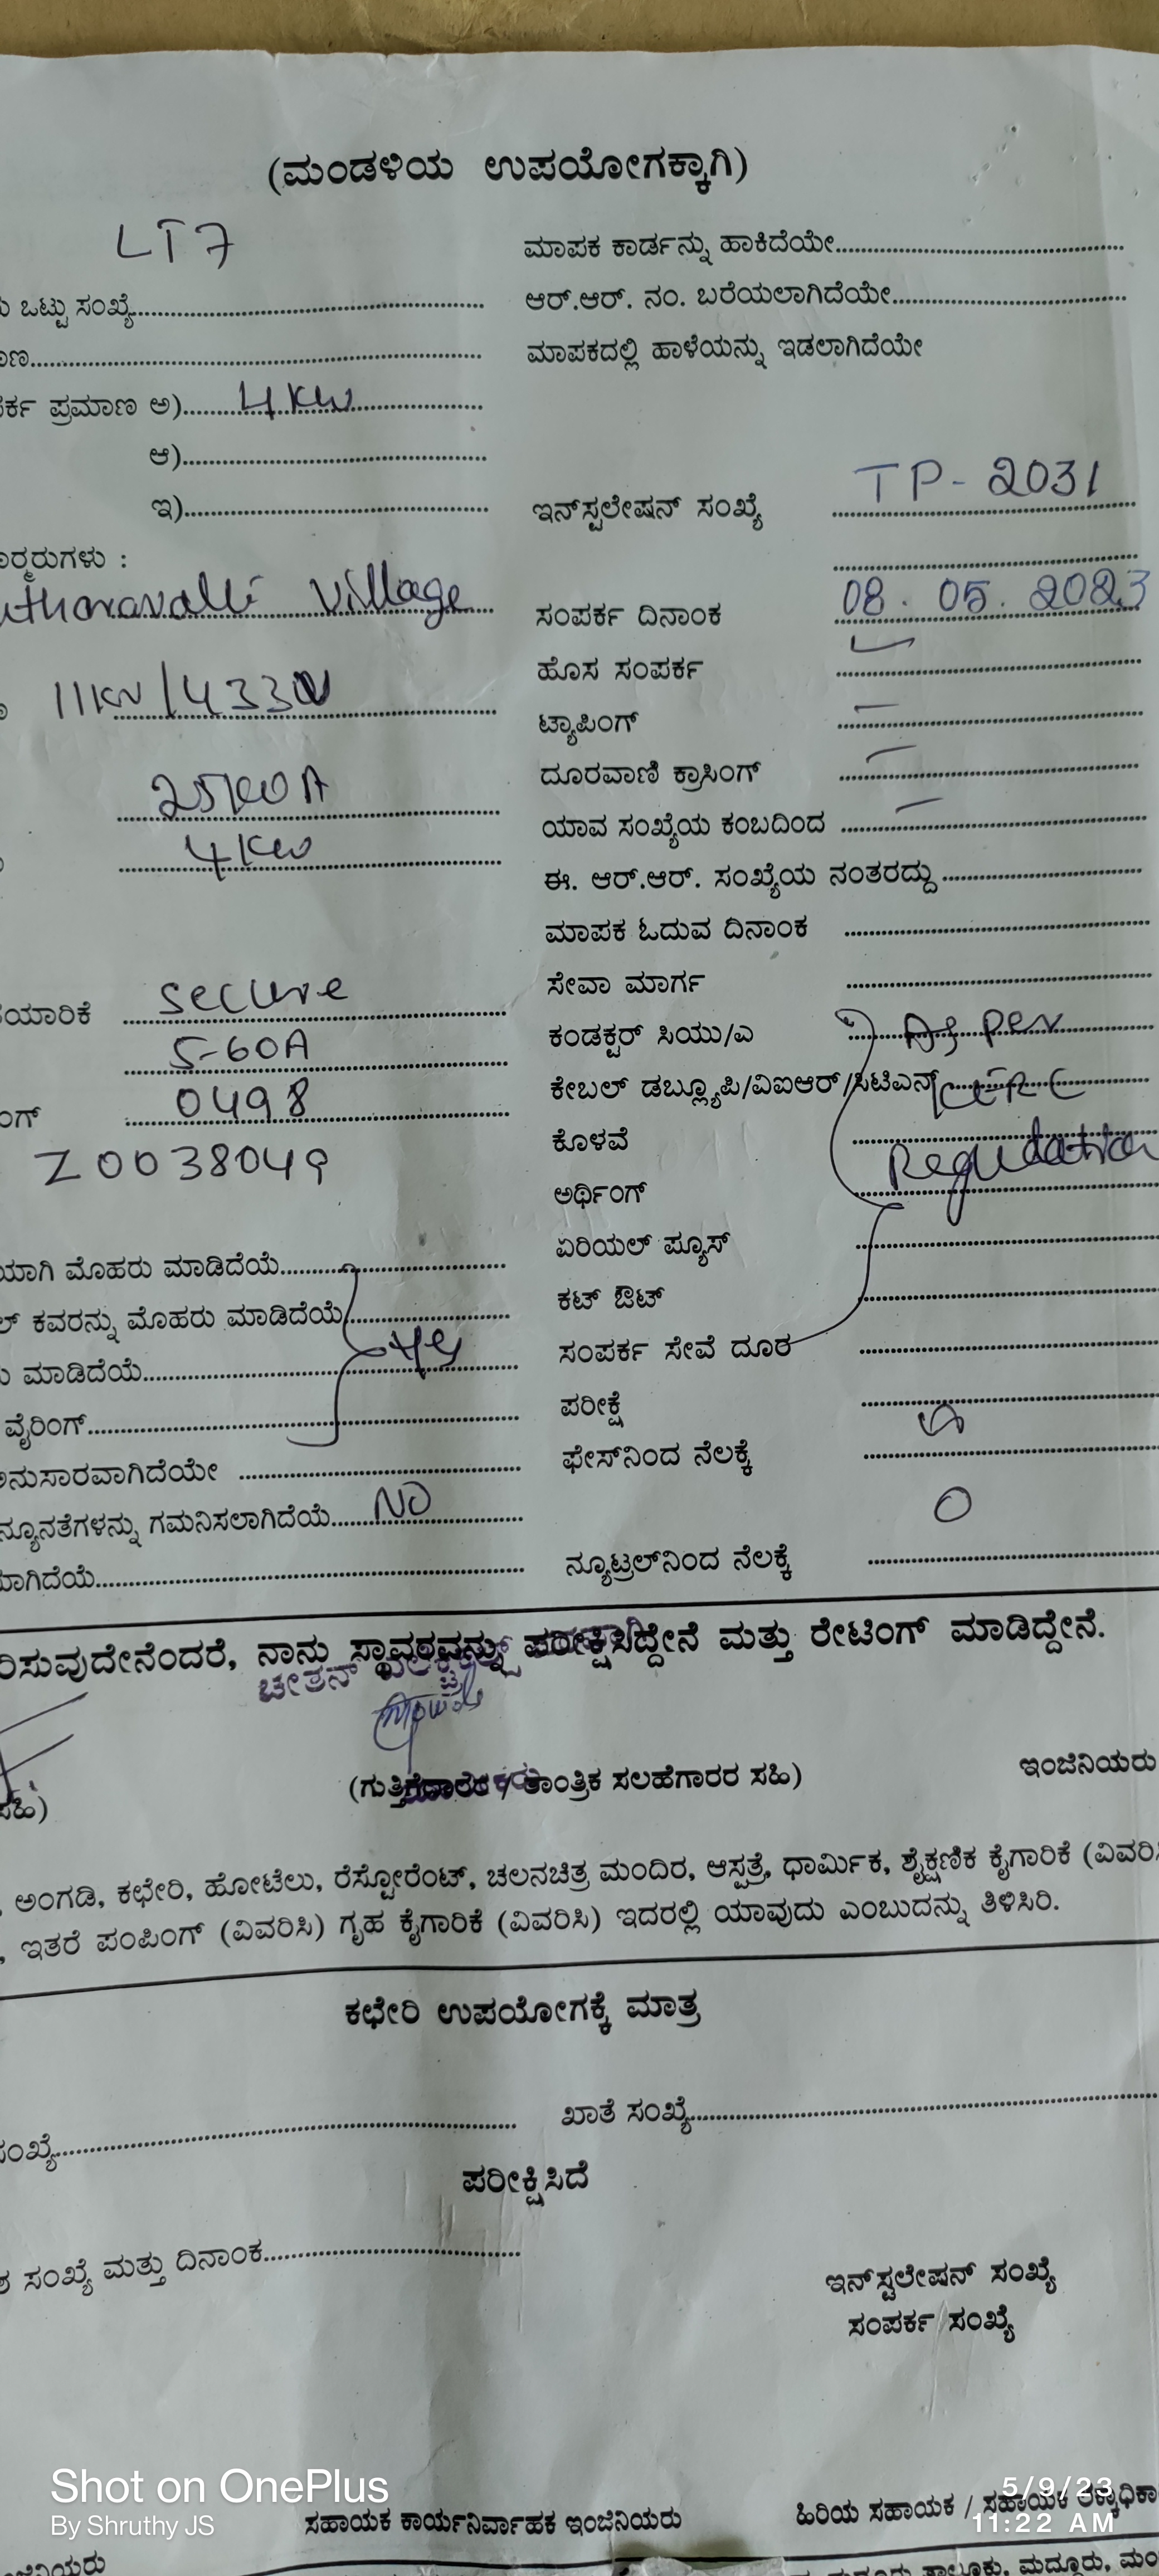 (ಮಂಡಳಿಯ ಉಪಯೋಗಕ್ಕಾಗಿ)
LT7
ಮಾಪಕ ಕಾರ್ಡನ್ನು ಹಾಕಿದೆಯೇ
ಒಟ್ಟು ಸಂಖ್ಯೆ
ಆರ್.ಆರ್. ನಂ. ಬರೆಯಲಾಗಿದೆಯೇ
ಮಾಪಕದಲ್ಲಿ ಹಾಳೆಯನ್ನು ಇಡಲಾಗಿದೆಯೇ
ಪ್ರಮಾಣ ಅ) 4KW
ಆ)
ಇ)
ಇನ್‌ಸ್ಟಲೇಷನ್ ಸಂಖ್ಯೆ TP-2031
Village
ಸಂಪರ್ಕ ದಿನಾಂಕ 08.05.2023
ಹೊಸ ಸಂಪರ್ಕ
11KV/433V
ಟ್ಯಾಪಿಂಗ್
ದೂರವಾಣಿ ಕ್ರಾಸಿಂಗ್
25KVA
ಯಾವ ಸಂಖ್ಯೆಯ ಕಂಬದಿಂದ
4KW
ಈ. ಆರ್.ಆರ್. ಸಂಖ್ಯೆಯ ನಂತರದ್ದು
ಮಾಪಕ ಓದುವ ದಿನಾಂಕ
ಸೇವಾ ಮಾರ್ಗ
secure
ಕಂಡಕ್ಟರ್ ಸಿಯು/ಎ As per
5-60A
ಕೇಬಲ್ ಡಬ್ಲ್ಯೂಪಿ/ವಿಐಆರ್/ಸಿಟಿಎನ್
0498
ಕೊಳವೆ
Z0038049
ಅರ್ಥಿಂಗ್ Regulation
ಏರಿಯಲ್ ಪ್ಯೂಸ್
ಮೊಹರು ಮಾಡಿದೆಯೆ
ಕಟ್ ಔಟ್
ಕವರನ್ನು ಮೊಹರು ಮಾಡಿದೆಯೆ
ಸಂಪರ್ಕ ಸೇವೆ ದೂರ
ಮಾಡಿದೆಯೆ
ಪರೀಕ್ಷೆ
ವೈರಿಂಗ್
ಫೇಸ್‌ನಿಂದ ನೆಲಕ್ಕೆ
ಅನುಸಾರವಾಗಿದೆಯೇ
ನ್ಯೂನತೆಗಳನ್ನು ಗಮನಿಸಲಾಗಿದೆಯೆ NO
ನ್ಯೂಟ್ರಲ್‌ನಿಂದ ನೆಲಕ್ಕೆ 0
ನಾನು ಸ್ಥಾವರವನ್ನು ಪರೀಕ್ಷಿಸಿದ್ದೇನೆ ಮತ್ತು ರೇಟಿಂಗ್ ಮಾಡಿದ್ದೇನೆ.
ಚೇತನ್
(ಗುತ್ತಿಗೆದಾರರ / ತಾಂತ್ರಿಕ ಸಲಹೆಗಾರರ ಸಹಿ)
ಇಂಜಿನಿಯರು
ಅಂಗಡಿ, ಕಛೇರಿ, ಹೋಟೆಲು, ರೆಸ್ಟೋರೆಂಟ್, ಚಲನಚಿತ್ರ ಮಂದಿರ, ಆಸ್ಪತ್ರೆ, ಧಾರ್ಮಿಕ, ಶೈಕ್ಷಣಿಕ ಕೈಗಾರಿಕೆ
ಇತರೆ ಪಂಪಿಂಗ್ (ವಿವರಿಸಿ) ಗೃಹ ಕೈಗಾರಿಕೆ (ವಿವರಿಸಿ) ಇದರಲ್ಲಿ ಯಾವುದು ಎಂಬುದನ್ನು ತಿಳಿಸಿರಿ.
ಕಛೇರಿ ಉಪಯೋಗಕ್ಕೆ ಮಾತ್ರ
ಖಾತೆ ಸಂಖ್ಯೆ
ಪರೀಕ್ಷಿಸಿದೆ
ಸಂಖ್ಯೆ ಮತ್ತು ದಿನಾಂಕ
ಇನ್‌ಸ್ಟಲೇಷನ್ ಸಂಖ್ಯೆ
ಸಂಪರ್ಕ ಸಂಖ್ಯೆ
Shot on OnePlus
By Shruthy JS
5/9/23
11:22 AM
ಸಹಾಯಕ ಕಾರ್ಯನಿರ್ವಾಹಕ ಇಂಜಿನಿಯರು
ಹಿರಿಯ ಸಹಾಯಕ / ಸಹಾಯಕ